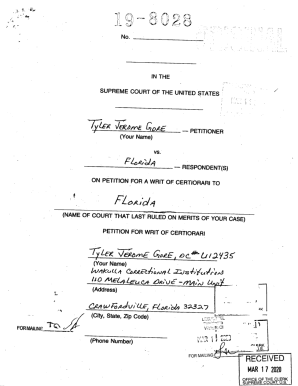 19-8028
No.
IN THE
SUPREME COURT OF THE UNITED STATES
Tyler Jerome Gore — PETITIONER
(Your Name)
vs.
Florida — RESPONDENT(S)
ON PETITION FOR A WRIT OF CERTIORARI TO
Florida
(NAME OF COURT THAT LAST RULED ON MERITS OF YOUR CASE)
PETITION FOR WRIT OF CERTIORARI
Tyler Jerome Gore, DC# U12435
(Your Name)
Wakulla Correctional Institution
110 Melaleuca Drive - Main Unit
(Address)
Crawfordville, Florida 32327
(City, State, Zip Code)
(Phone Number)
FOR MAILING
FOR MAILING
RECEIVED
MAR 17 2020
OFFICE OF THE CLERK
SUPREME COURT, U.S.